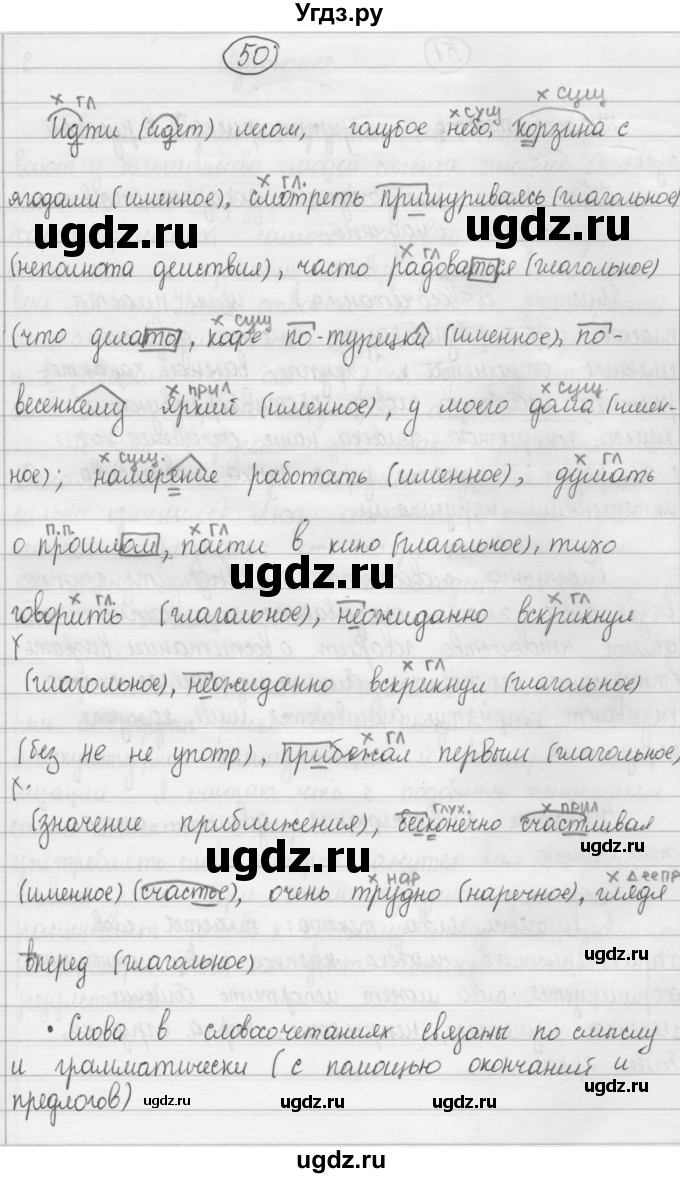 Угдз.ру
50
х гл х сущ х сущ
Идти (идёт) лесом, голубое небо, корзина с
х гл.
ягодами (именное), смотреть прищуриваясь (глагольное)
ugdz.ru ugdz.ru
х гл
(неполнота действия), часто радоваться (глагольное)
х сущ
(что делать), кофе по-турецки (именное), по-
х прил х сущ.
весеннему яркий (именное), у моего дома (имен-
х сущ. х гл
ное); намерение работать (именное), думать
п.п. х гл
о прошлом, пойти в кино (глагольное), тихо
ugdz.ru
х гл. х гл
говорить (глагольное), неожиданно вскрикнул
х гл
(глагольное), неожиданно вскрикнул (глагольное)
х гл
(без не не употр.), прибежал первым (глагольное)
глух. х прил
(значение приближения), бесконечно счастливая
ugdz.ru ugdz.ru
х нар х деепр
(именное) (счастье), очень трудно (наречное), глядя
ugdz.ru
вперед (глагольное)
• Слова в словосочетаниях связаны по смыслу
и грамматически (с помощью окончаний и
предлогов)
ugdz.ru ugdz.ru ugdz.ru ugdz.ru
ugdz.ru